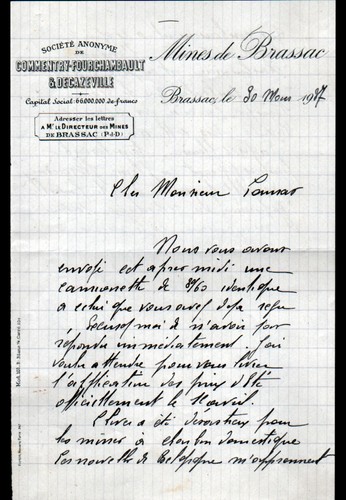 SOCIÉTÉ ANONYME
DE
COMMENTRY-FOURCHAMBAULT
& DECAZEVILLE
Capital Social: 66.000.000 de francs
Adresser les lettres
A Mr LE DIRECTEUR DES MINES
DE BRASSAC (P-d-D)
Mines de Brassac
Brassac, le 30 Mars 1937
Cher Monsieur
Nous vous avons
envoyé cet apres midi une
camionnette de identique
a celui que vous avez deja reçu
Excusez moi de n'avoir pas
repondu immediatement. J'ai
voulu attendre pour vous livrer
l'application des prix d'été
officiellement le 1er avril.
L'hiver a été desastreux pour
les mines à charbon domestique
Les nouvelles de Belgique m'apprennent